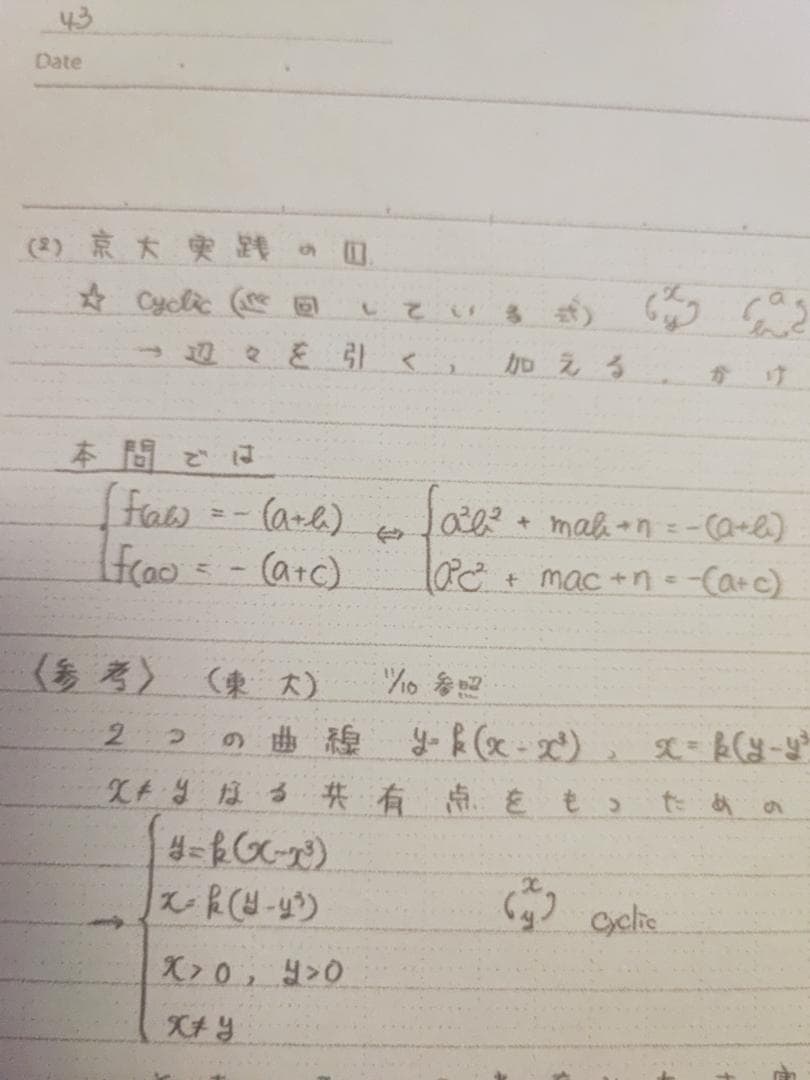 43
Date
(2) 京大実践の
☆ cyclic (巡回している式) (x y) (a b c)
→ 辺々を引く, 加える. かけ
本問では
{ f(ab) = -(a+b) ⇔ { a²b² + mab + n = -(a+b)
{ f(ac) = -(a+c) { a²c² + mac + n = -(a+c)
〈参考〉 (東大) 11/10 参照
2つの曲線 y=k(x-x³), x=k(y-y³
x≠yなる共有点をもつための
{ y=k(x-x³)
x=k(y-y³) (x y) cyclic
→ x>0, y>0
x≠y